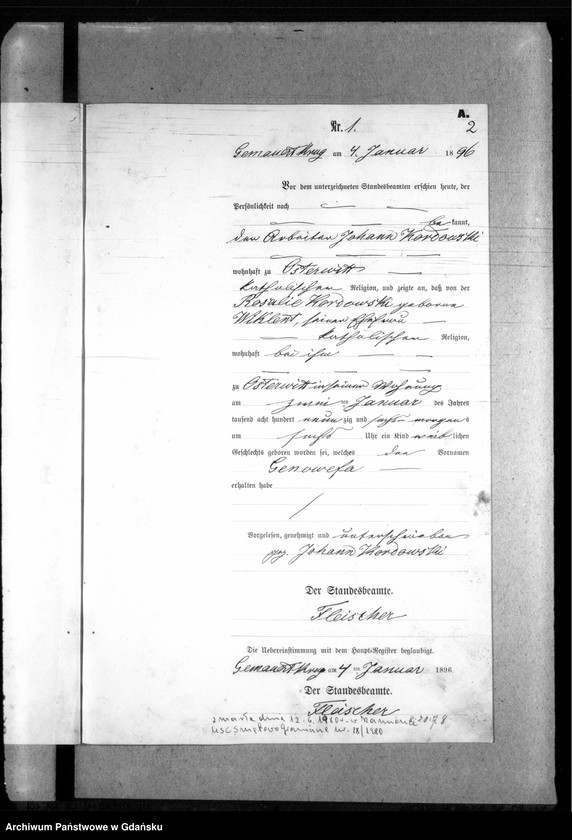 A.
Nr. 1. 2
am 4. Januar 1896
Vor dem unterzeichneten Standesbeamten erschien heute, der
Persönlichkeit nach
bekannt,
der Arbeiter Johann Kordowski
wohnhaft zu Osterwitt
katholischen Religion, und zeigte an, daß von der
Rosalie Kordowski geborene
seiner Ehefrau
katholischen Religion,
wohnhaft bei ihm
zu Osterwitt in seiner Wohnung
am zwei ten Januar des Jahres
tausend acht hundert neunzig und sechs morgens
um sechs Uhr ein Kind weiblichen
Geschlechts geboren worden sei, welches den Vornamen
Genowefa
erhalten habe
Vorgelesen, genehmigt und unterschrieben
gez. Johann Kordowski
Der Standesbeamte.
Fleischer
Die Uebereinstimmung mit dem Haupt-Register beglaubigt.
am 4 ten Januar 1896.
Der Standesbeamte.
Fleischer
zmarła dnia 12. 6. 1980 r. w
USC Smętowo Graniczne nr. 18/1980
Archiwum Państwowe w Gdańsku